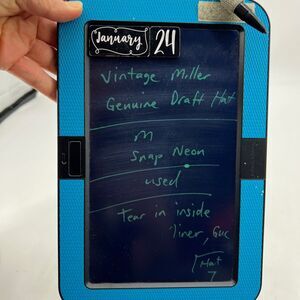 January 24
Vintage Miller
Genuine Draft Hat
m
Snap Neon
used
Tear in inside
liner, Guc
Hat
7